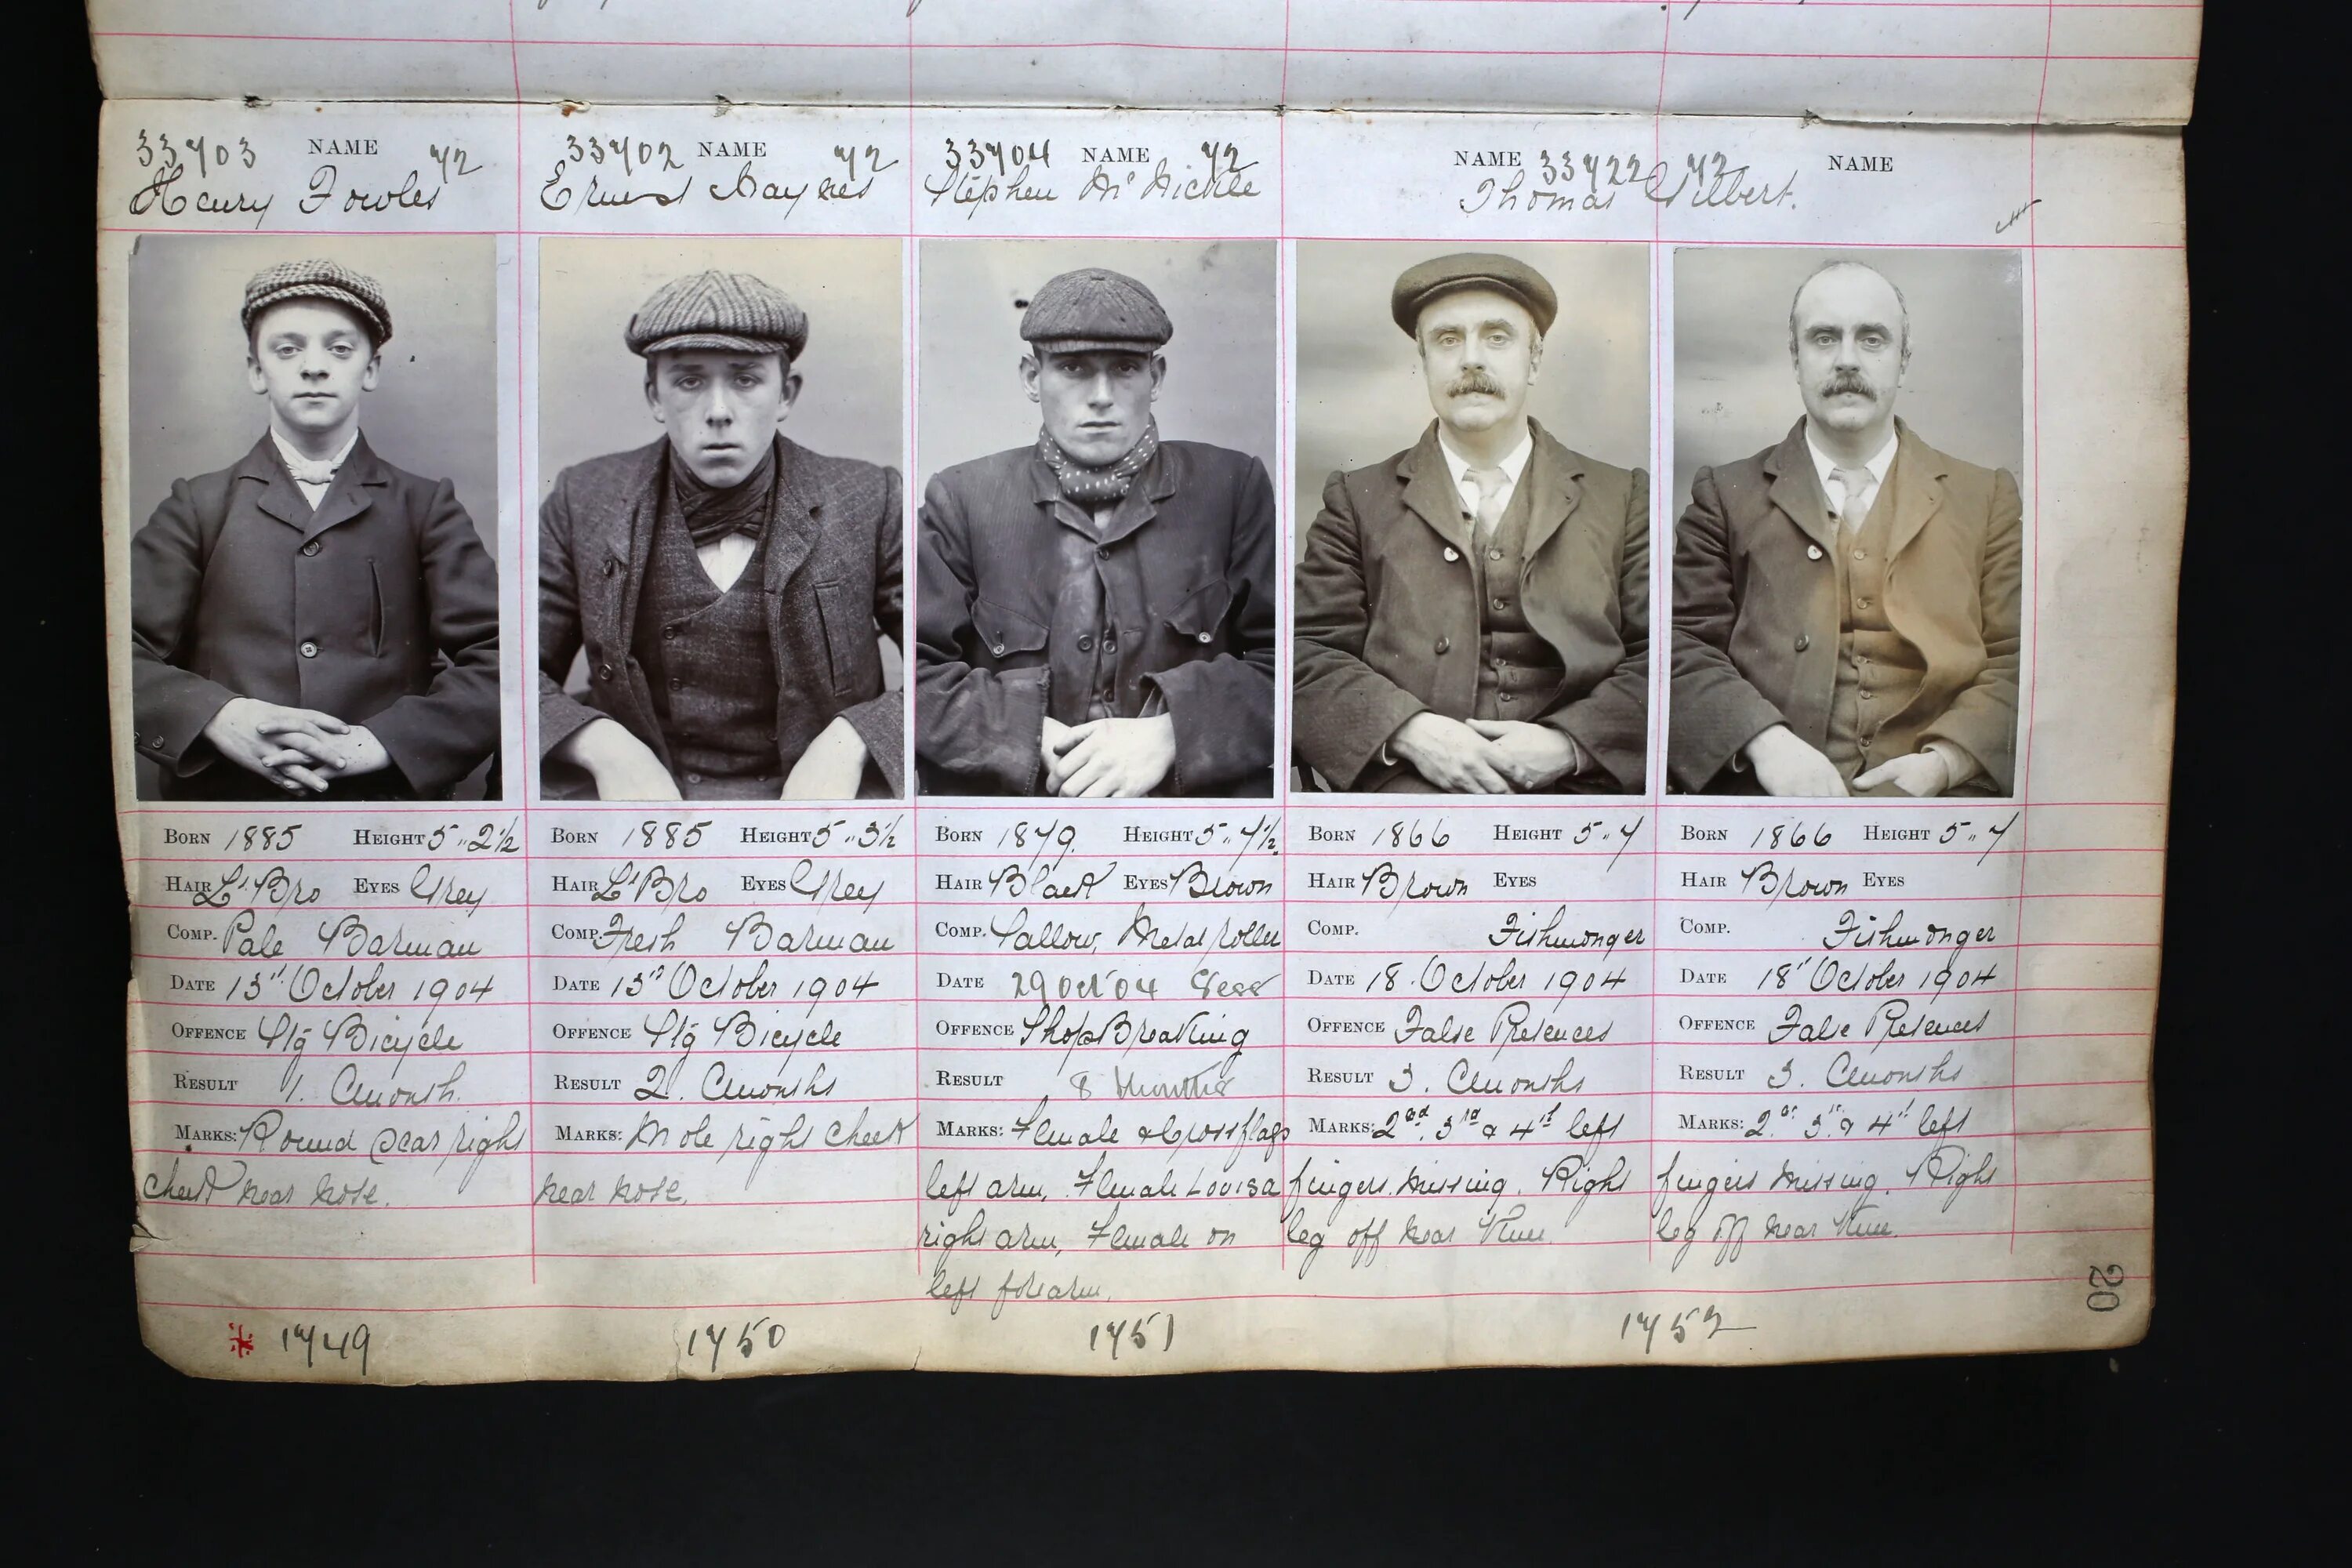 33703 NAME 72
Henry Fowles
Born 1885 Height 5..2½
Hair Lt Bro Eyes Grey
Comp. Pale Barman
Date 13th October 1904
Offence Stg Bicycle
Result 1. Cmonth.
Marks: Round scar right
cheek near nose.
* 1749
33702 NAME 72
Ernest Haynes
Born 1885 Height 5..3½
Hair Lt Bro Eyes Grey
Comp. Fresh Barman
Date 13th October 1904
Offence Stg Bicycle
Result 2. Cmonths
Marks: Mole right cheek
near nose.
1750
33704 NAME 72
Stephen Mc Nickle
Born 1879. Height 5..7½.
Hair Black Eyes Brown
Comp. Sallow, Metal roller
Date 29 Oct 04 Sess
Offence ShopBreaking
Result 8 Months
Marks: Female & Cross flags
left arm, Female Louisa
right arm, Female on
left forearm.
1751
NAME 33722 72 NAME
Thomas Gilbert.
Born 1866 Height 5..7
Hair Brown Eyes
Comp. Fishmonger
Date 18. October 1904
Offence False Pretences
Result 3. Cmonths
Marks: 2nd. 3rd & 4th left
fingers missing. Right
leg off near Knee.
Born 1866 Height 5..7
Hair Brown Eyes
Comp. Fishmonger
Date 18th October 1904
Offence False Pretences
Result 3. Cmonths
Marks: 2nd 3rd & 4th left
fingers missing. Right
leg off near Knee.
1752
20